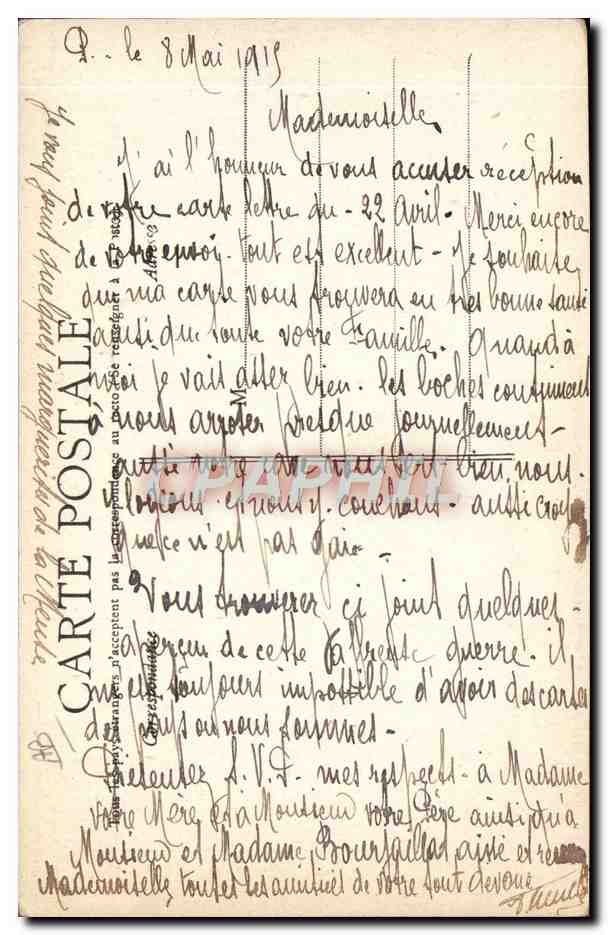 P.. le 8 Mai 1915
Mademoiselle,
J'ai l'honneur de vous accuser réception
de votre carte lettre du - 22 Avril - Merci encore
de votre envoi. tout est excellent - Je souhaite
que ma carte vous trouvera en tres bonne santé
ainsi que toute votre Famille. Quand à
moi je vais asser bien. les boches continuent
à nous arroser presque journellement -
aussi votre cave nous sert bien nous
logeons et nous y couchons - aussi croyez
que ce n'est pas gai -
Vous trouverez ci joint quelques
aperçu de cette affreuse guerre. il
m'est toujours impossible d'avoir des cartes
de pays ou nous sommes -
Présentez S.V.P. mes respects - à Madame
votre Mère et à Monsieur votre Père ainsi qu'à
Monsieur et Madame Boursaillat, aisé et
Mademoiselle toutes les amitiés de votre tout dévoué
Je vous joint quelques marguerites de la Meuse
CARTE POSTALE
Tous les pays étrangers n'acceptent pas la correspondance au recto. (Se renseigner à la Poste)
Correspondance
Adresse
M
CPAPHIL